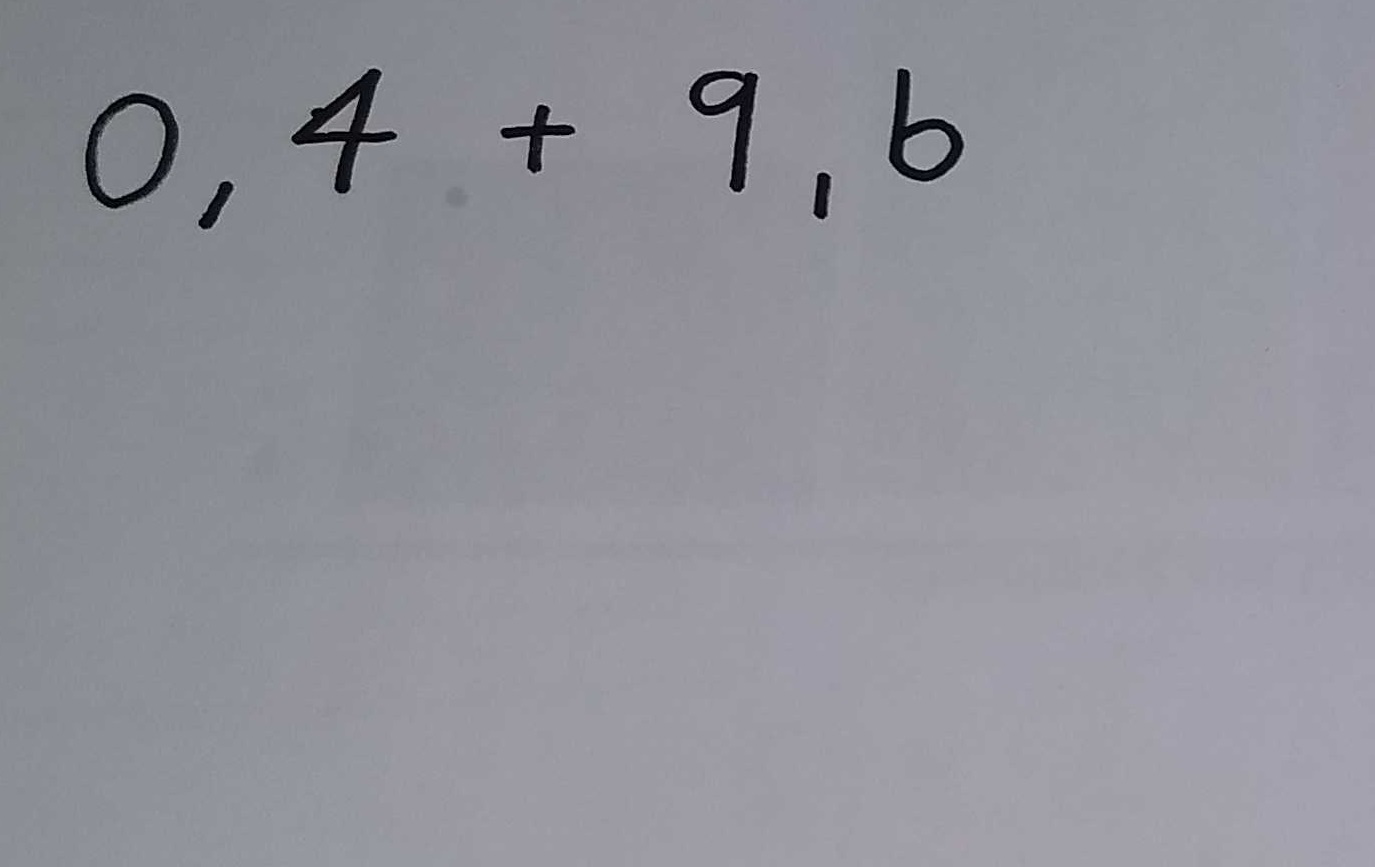 0,4 + 9,6